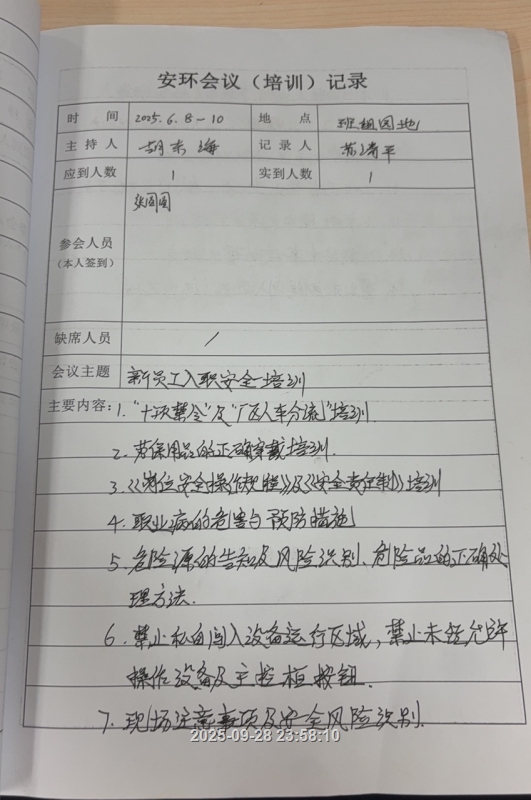 安环会议（培训）记录
时 间 2025.6.8-10 地 点 班组园地
主 持 人 胡东海 记 录 人
应到人数 1 实到人数 1
参会人员
（本人签到）
缺席人员 /
会议主题 新员工入职安全培训
主要内容：1."十项禁令"及"厂区人车分流"培训.
2. 劳保用品的正确穿戴培训.
3.《岗位安全操作规程》及《安全责任制》培训
4. 职业病的危害与预防措施
5. 危险源的告知及风险识别、危险品的正确处
理方法.
6. 禁止私自闯入设备运行区域，禁止未经允许
操作设备及主控柜按钮.
7. 现场注意事项及安全风险识别.
2025-09-28 23:58:10